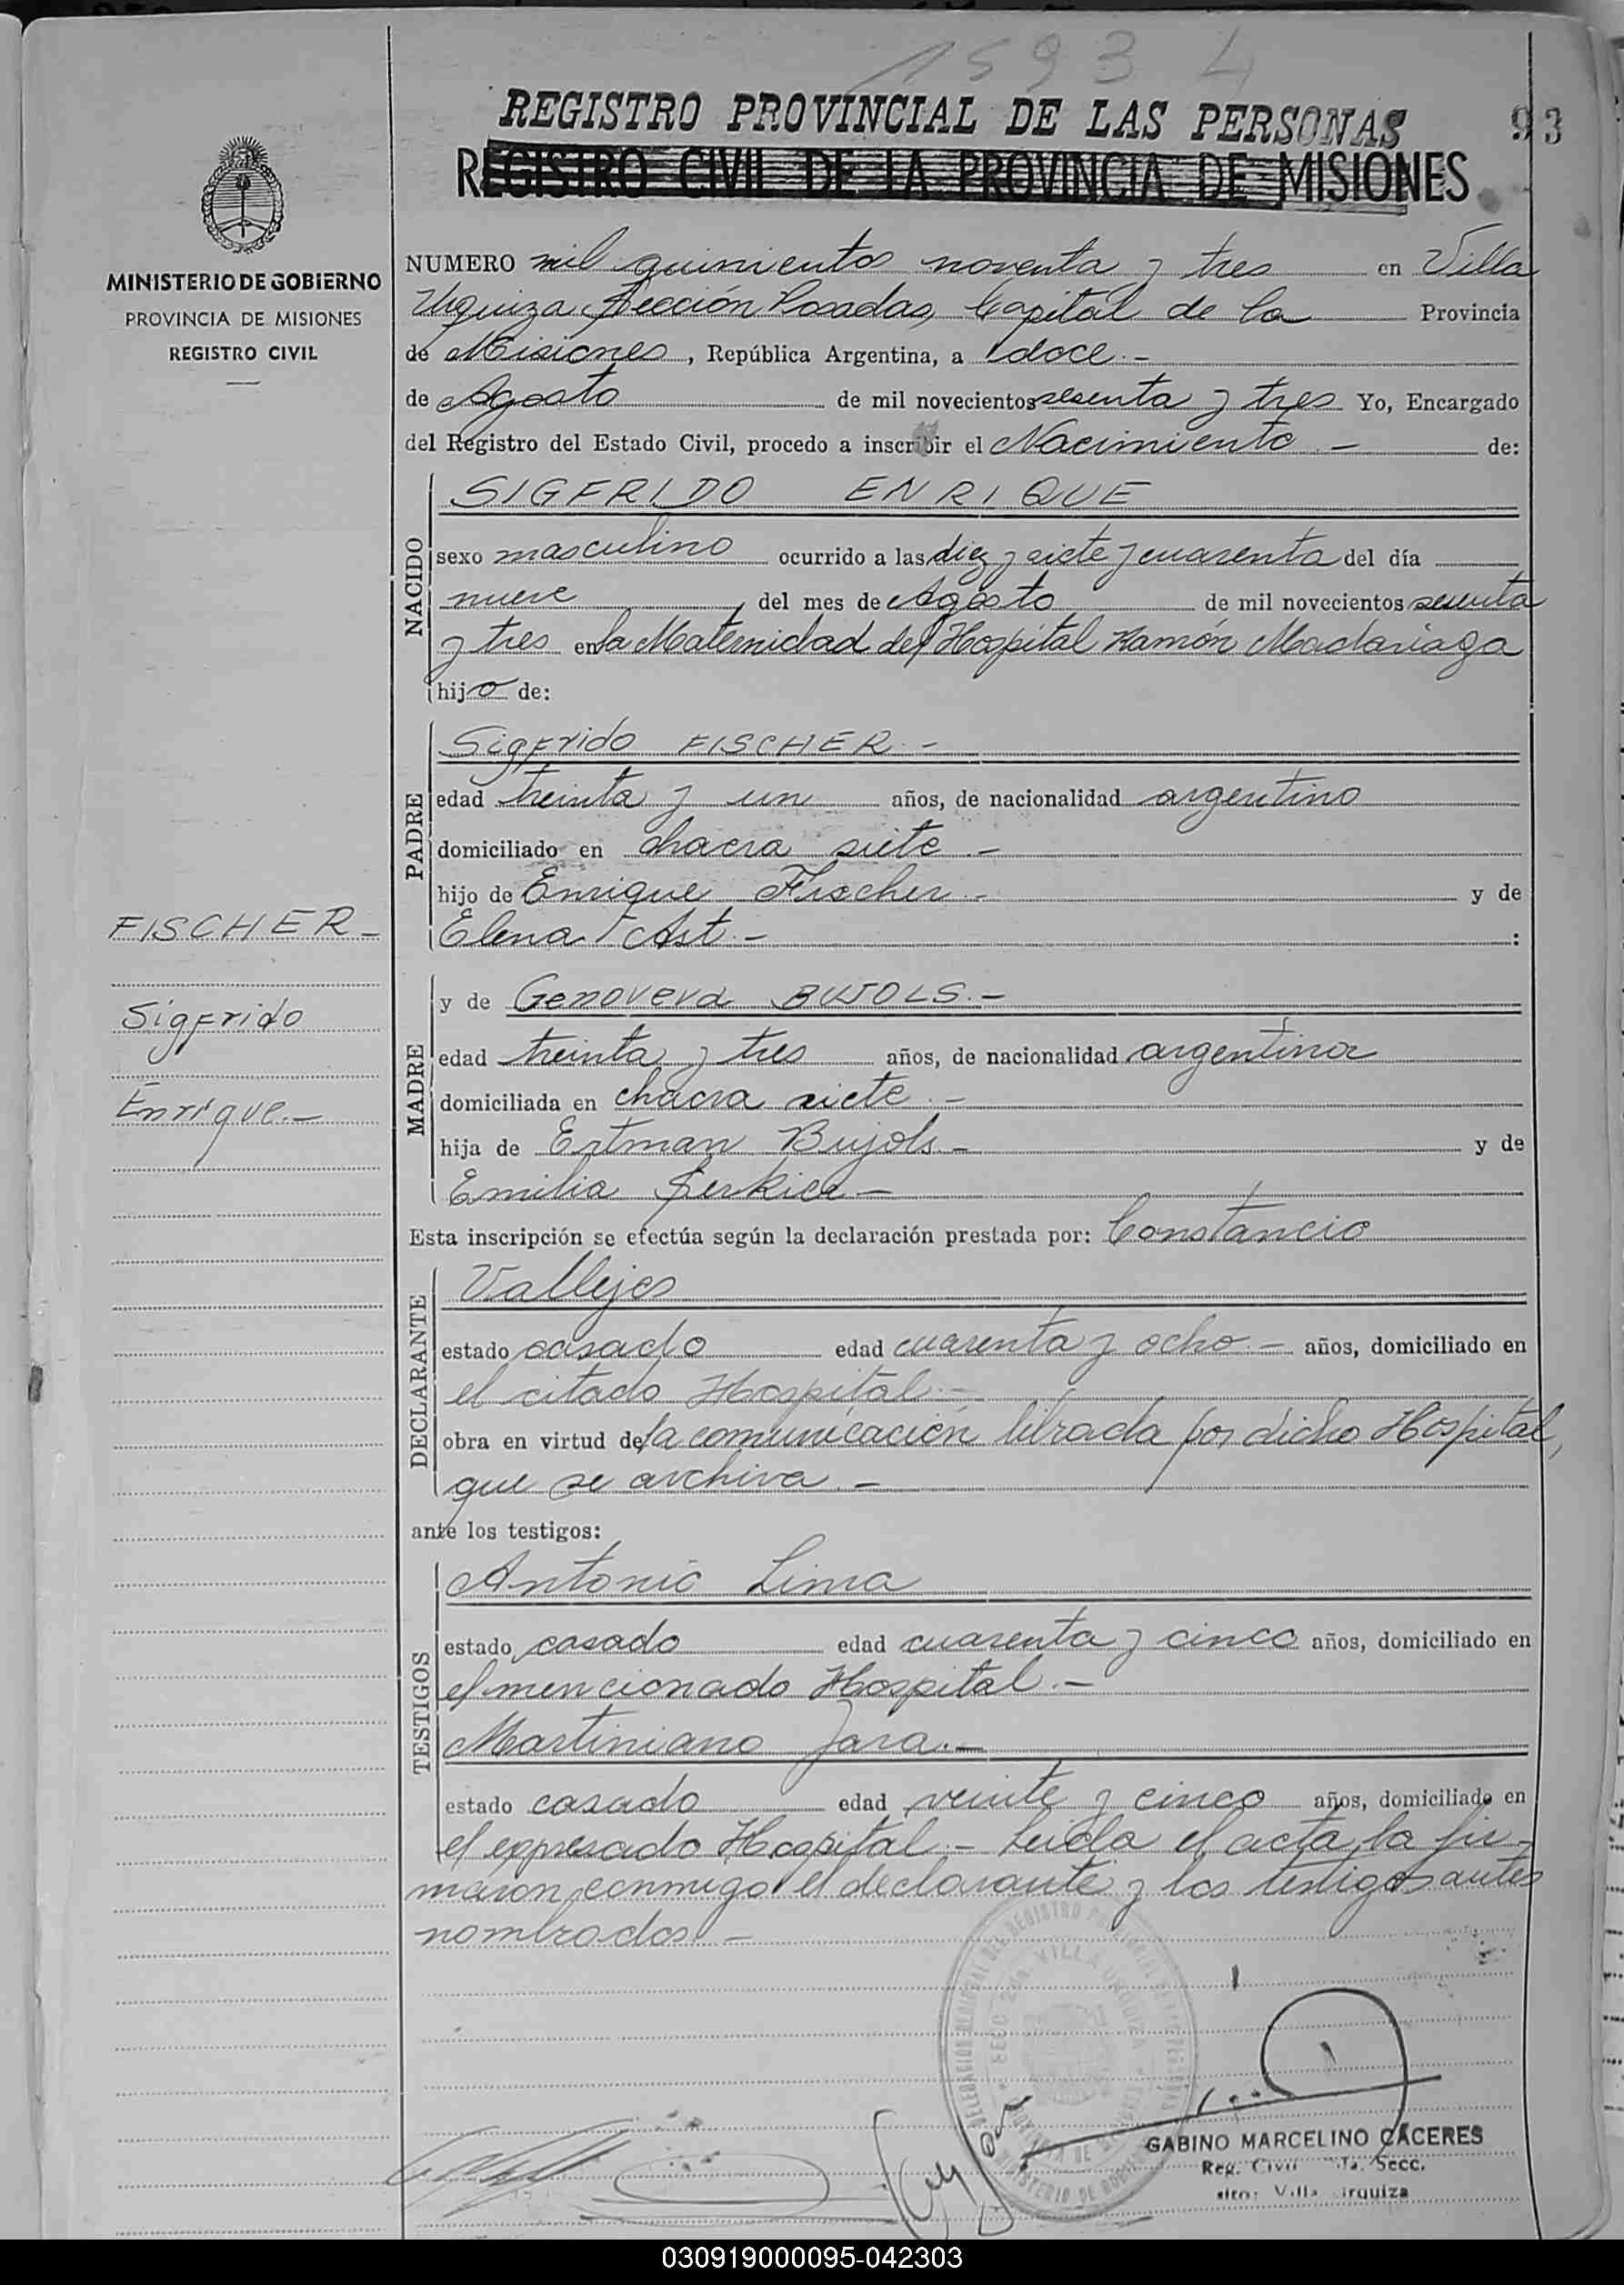 1593 4
REGISTRO PROVINCIAL DE LAS PERSONAS
93
REGISTRO CIVIL DE LA PROVINCIA DE MISIONES
MINISTERIO DE GOBIERNO
PROVINCIA DE MISIONES
REGISTRO CIVIL
NUMERO mil quinientos noventa y tres en Villa
Urquiza Sección Posadas, Capital de la Provincia
de Misiones, República Argentina, a doce.-
de Agosto de mil novecientos sesenta y tres Yo, Encargado
del Registro del Estado Civil, procedo a inscribir el Nacimiento.- de:
NACIDO
SIGFRIDO ENRIQUE
sexo masculino ocurrido a las diez y siete y cuarenta del día
nueve del mes de Agosto de mil novecientos sesenta
y tres en la Maternidad del Hospital Ramón Madariaga
hijo de:
PADRE
Sigfrido FISCHER.-
edad treinta y un años, de nacionalidad argentino
domiciliado en chacra siete.-
hijo de Enrique Fischer.- y de
Elena Ast.- :
FISCHER-
Sigfrido
Enrique.-
MADRE
y de Genoveva BUJOLS.-
edad treinta y tres años, de nacionalidad argentina
domiciliada en chacra siete.-
hija de Ertman Bujols.- y de
Emilia
Esta inscripción se efectúa según la declaración prestada por: Constancio
DECLARANTE
Vallejos
estado casado edad cuarenta y ocho.- años, domiciliado en
el citado Hospital.-
obra en virtud de la comunicación librada por dicho Hospital,
que se archiva.-
ante los testigos:
TESTIGOS
Antonio Lima
estado casado edad cuarenta y cinco años, domiciliado en
el mencionado Hospital.-
Martiniano Jara.-
estado casado edad veinte y cinco años, domiciliado en
el expresado Hospital.- Leida el acta, la fir-
maron conmigo el declarante y los testigos antes
nombrados.-
GABINO MARCELINO CÁCERES
Reg. Civil Secc.
Villa Urquiza
030919000095-042303